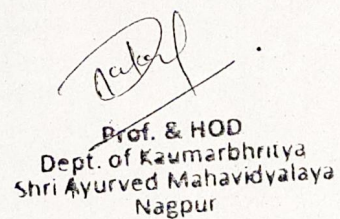 Prof. & HOD
Dept. of Kaumarbhritya
Shri Ayurved Mahavidyalaya
Nagpur